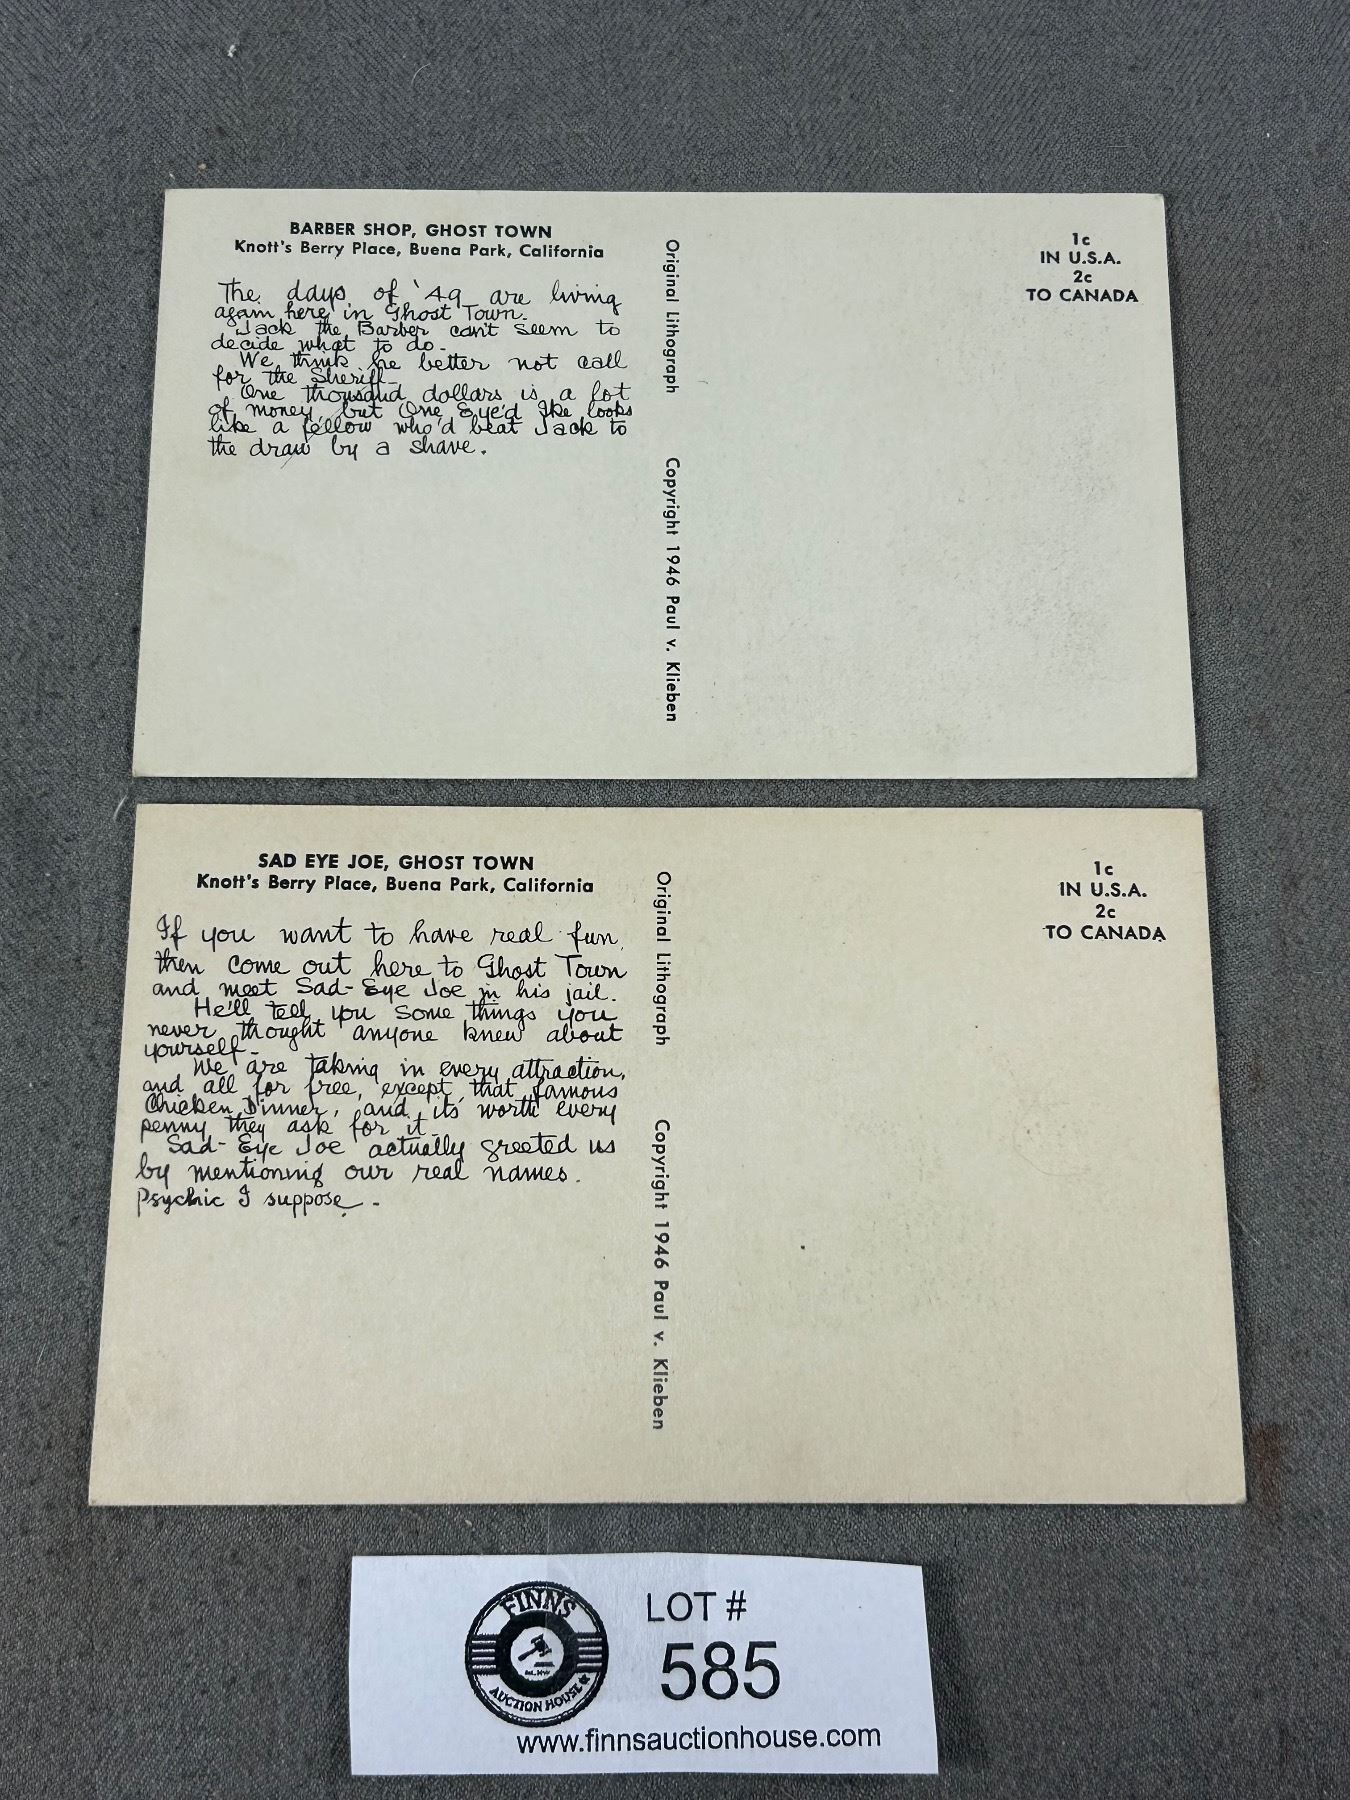 BARBER SHOP, GHOST TOWN
Knott's Berry Place, Buena Park, California
The days of '49 are living
again here in Ghost Town.
Jack the Barber can't seem to
decide what to do-
We think he better not call
for the Sheriff-
One thousand dollars is a lot
of money, but One Eye'd Ike looks
like a fellow who'd beat Jack to
the draw by a shave.
Original Lithograph
Copyright 1946 Paul v. Klieben
1c
IN U.S.A.
2c
TO CANADA
SAD EYE JOE, GHOST TOWN
Knott's Berry Place, Buena Park, California
If you want to have real fun,
then come out here to Ghost Town
and meet Sad-Eye Joe in his jail.
He'll tell you some things you
never thought anyone knew about
yourself-
We are taking in every attraction,
and all for free, except that famous
Chicken Dinner, and its worth every
penny they ask for it-
Sad-Eye Joe actually greeted us
by mentioning our real names.
Psychic I suppose-
Original Lithograph
Copyright 1946 Paul v. Klieben
1c
IN U.S.A.
2c
TO CANADA
FINNS
AUCTION HOUSE
LOT #
585
www.finnsauctionhouse.com